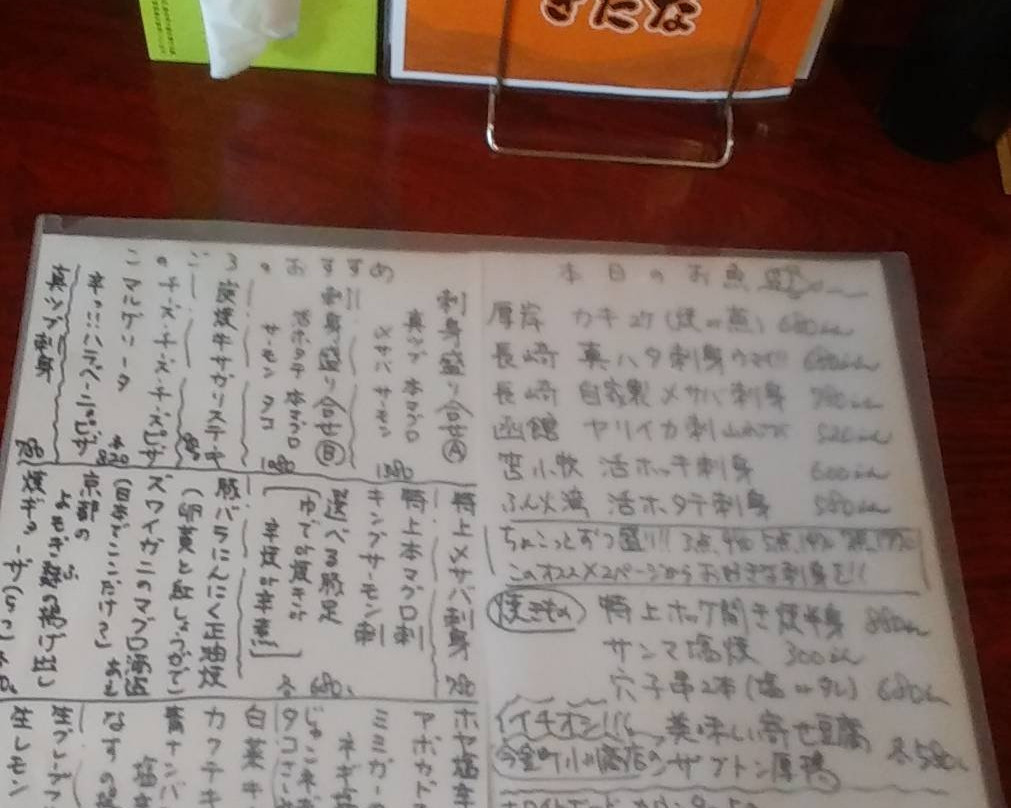 きたな
本日のお魚
厚岸 カキ2ケ(焼or蒸) 680
長崎 真ハタ刺身ウマイ!! 680
長崎 自家製〆サバ刺身 780
函館 ヤリイカ刺
苫小牧 活ホッキ刺身 600
ふん火湾 活ホタテ刺身 580
ちょこっとずつ盛り!! 3点
このオススメ2ページからお好きな刺身を!!
焼きもの 特上ホッケ開き焼半身 880
サンマ塩焼 300
穴子串2本(塩orタレ) 680
イチオシ!!! 美味しい寄せ豆腐
今金町小川商店の ザブトン厚揚 各580
のおすすめ
刺身盛り合せⒶ
真ツブ 本マグロ
〆サバ サーモン 1380
刺身盛り合せⒷ
活ホタテ 本マグロ
サーモン タコ 1080
炭焼牛サガリステーキ
チーズ・チーズ・チーズピザ
マルゲリータ 820
辛っ!!ハラペーニョピザ
真ツブ刺身 780
特上〆サバ刺身 780
特上本マグロ刺
キングサーモン刺
選べる豚足
ゆでor焼きor
辛焼or辛煮 各680
豚バラにんにく正油焼
(卵黄と紅しょうがで)
ズワイガニのマグロ酒盗
(日本でここだけ?)
京都の
よもぎ麩の揚げ出し
焼ギョーザ(5コ)
ホヤ塩辛
アボカド
ミミガー
ネギ
じゃこネギ
タコさ
白菜キ
カクテキ
青ナンバ
塩辛
なすの
生レモン